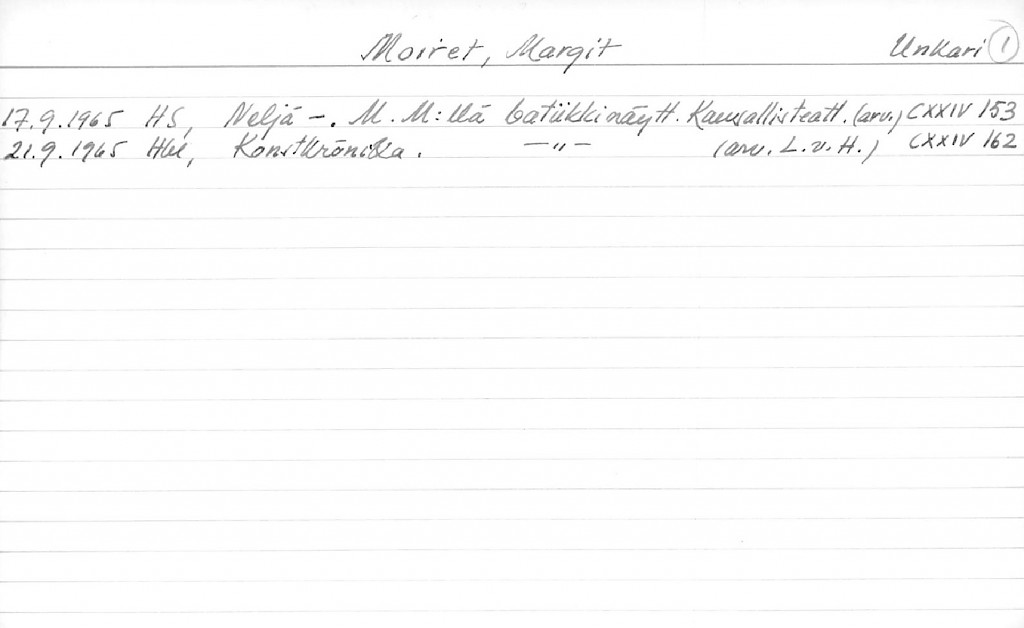 Moiret, Margit Unkari 1
17.9.1965 HS, Neljä -. M. M:llä batiikkinäytt. Kansallisteatt. (arv.) CXXIV 153
21.9.1965 Hbl, Konstkrönika. -"- (arv. L.v.H.) CXXIV 162